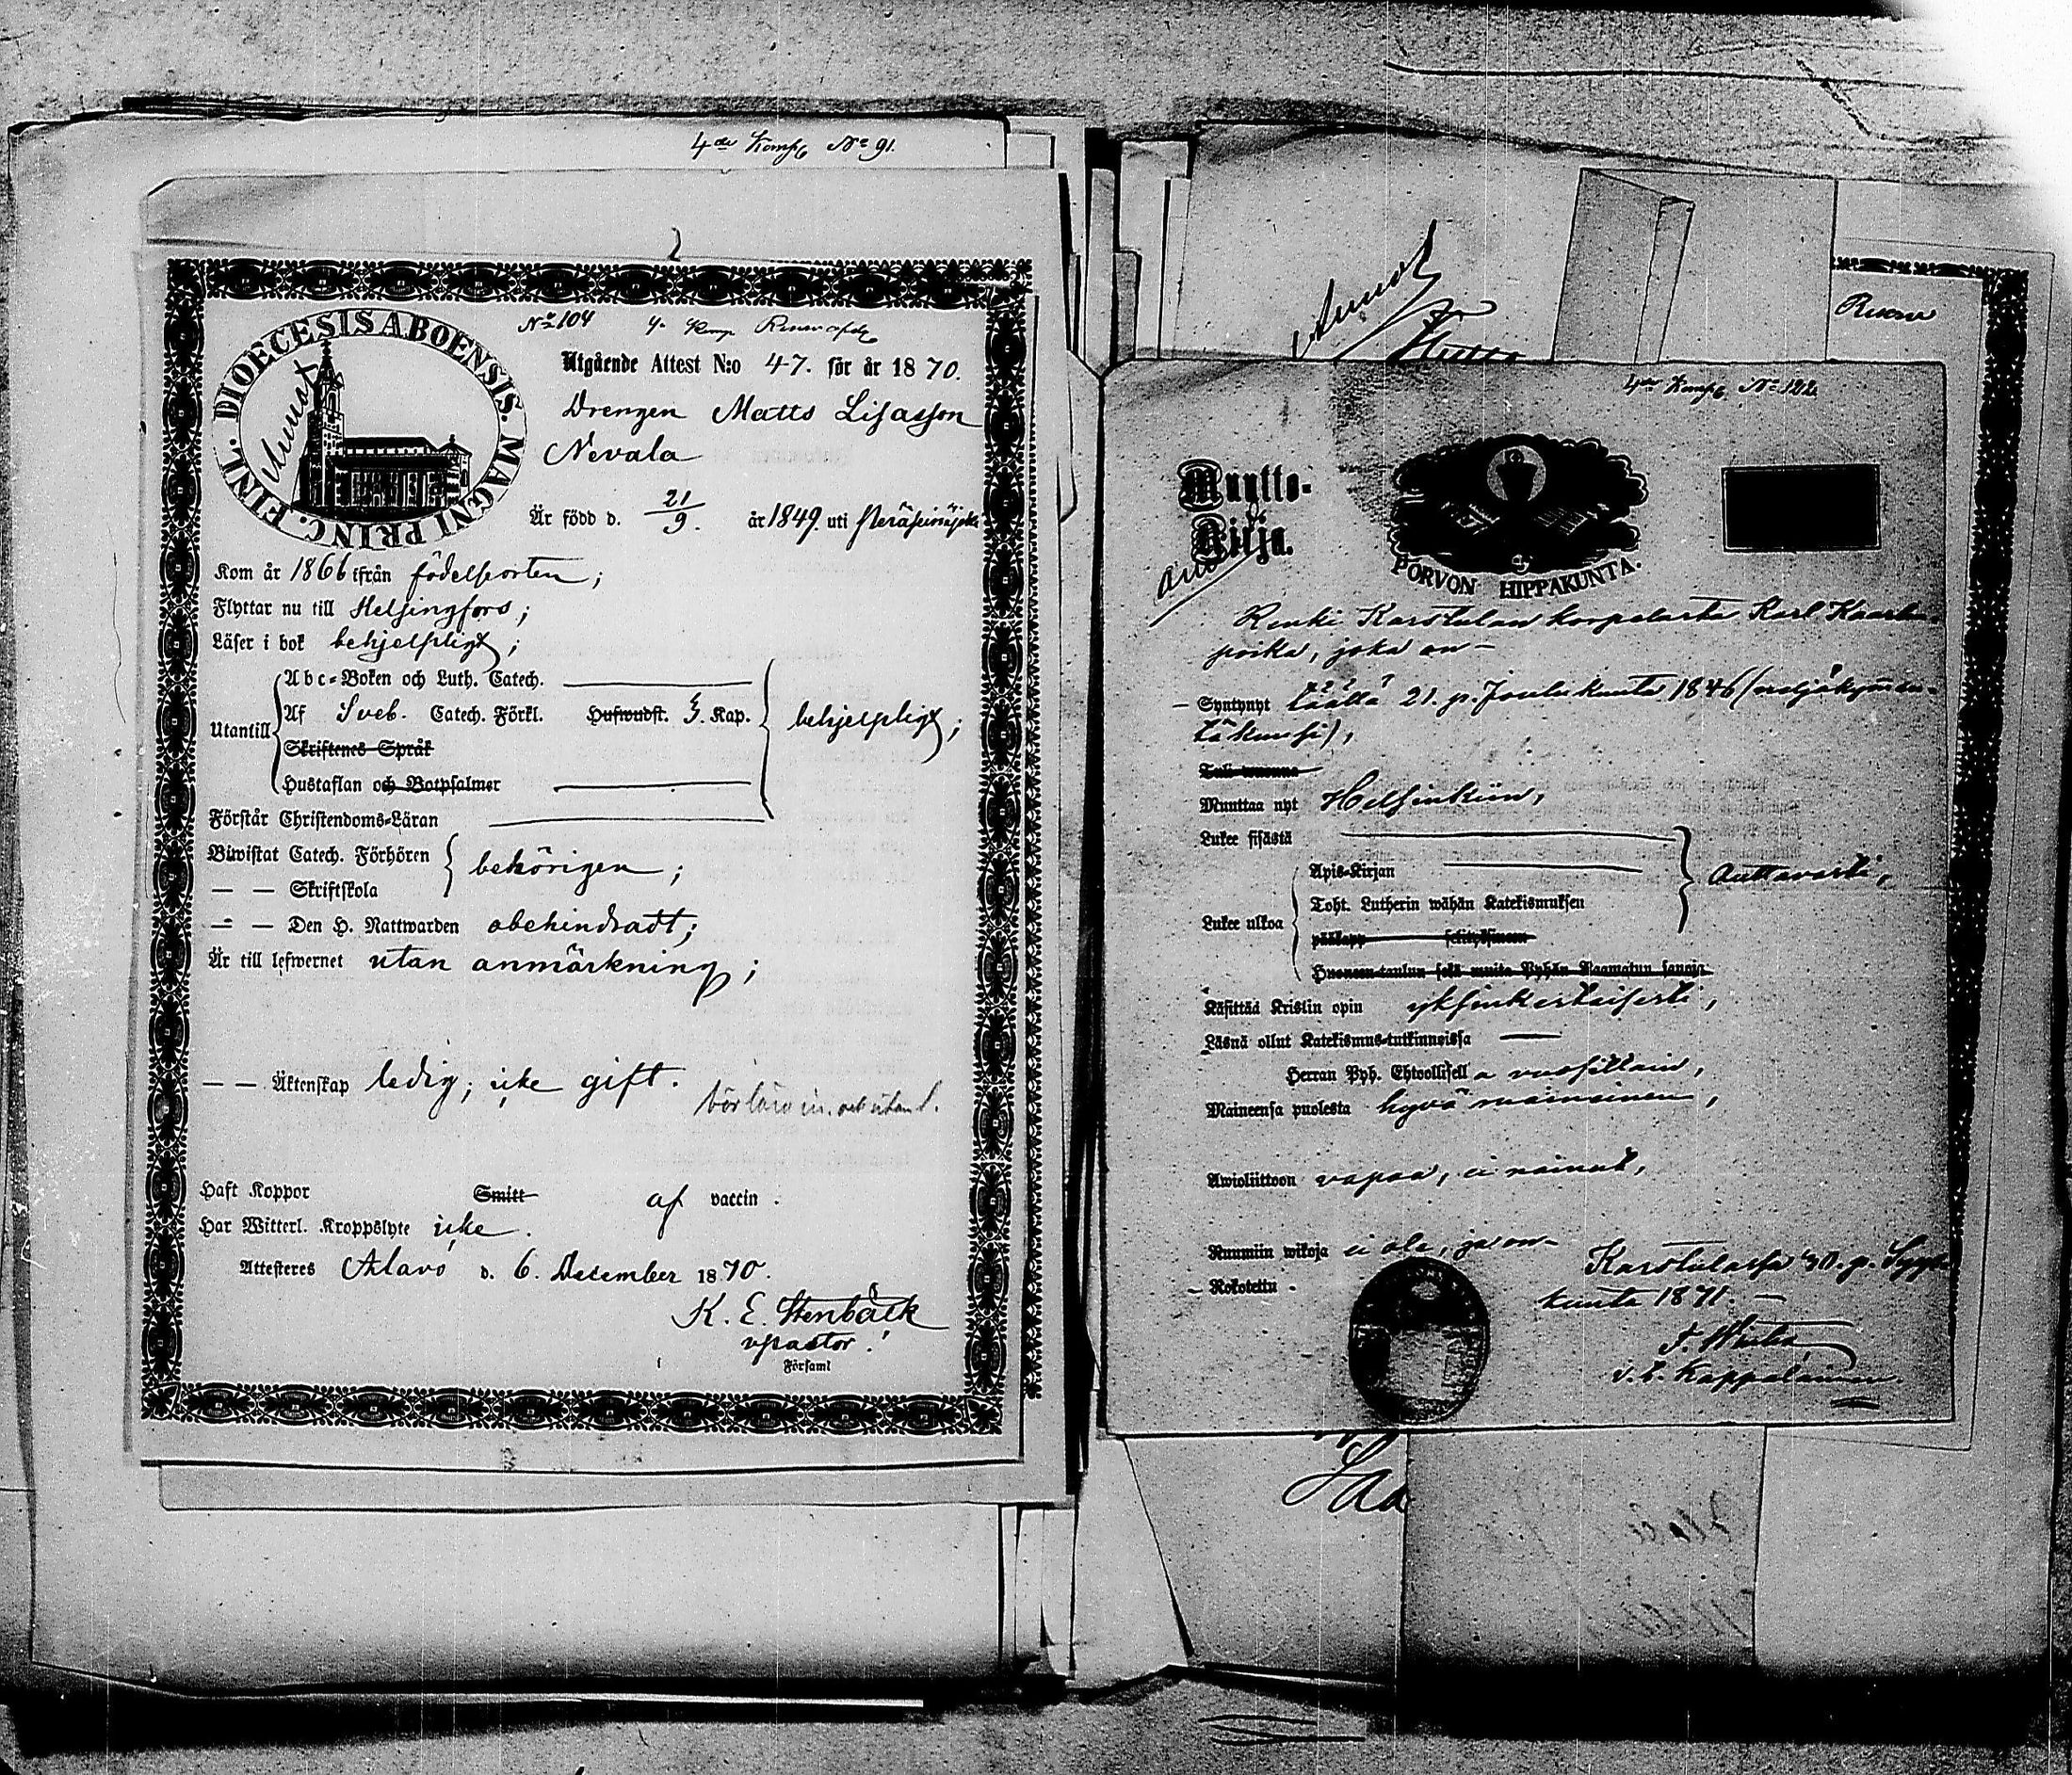 4de Komp No 91.
No 104 4. Komp
DIOECESIS ABOENSIS. MAGNI PRINC. FINL.
Utgående Attest N:o 47. för år 1870.
Drengen Matts Lisasson
Nevala
Är född d. 21/9. år 1849. uti Peräseinäjoki
Kom år 1866 ifrån födelseorten;
Flyttar nu till Helsingfors;
Läser i bok behjelpligt;
Abc-Boken och Luth. Catech.
Utantill Af Sveb. Catech. Förkl. Hufwudst. 3. Kap. behjelpligt;
Skriftenes Språk
Hustaflan och Botpsalmer
Förstår Christendoms-Läran
Biwistat Catech. Förhören behörigen;
— — Skriftskola
— — Den H. Nattwarden obehindradt;
Är till lefwernet utan anmärkning;
— — Äktenskap ledig; icke gift.
Haft Koppor Smitt af vaccin.
Har Witterl. Kroppslyte icke.
Attesteres Alavo d. 6. December 1870.
K. E. Stenbäck
vpastor.
Församl
Reserv
4de Komp No 122
Muutto-
Kirja.
PORVON HIPPAKUNTA.
Renki Karstulan korpelasta Karl Kaarle-
poika, joka on —
— Syntynyt täällä 21. p. Joulukuuta 1846 (neljäkymmen-
täkuusi),
Tuli wuonna
Muuttaa nyt Helsinkiin,
Lukee sisästä
Apis-Kirjan auttavasti,
Lukee ulkoa Toht. Lutherin wähän Katekismuksen
pääkapp selityksineen
Huoneen-taulun sekä muita Pyhän Raamatun sanoja
Käsittää Kristin opin yksinkertaisesti,
Läsnä ollut Katekismus-tutkinnoissa —
Herran Pyh. Ehtoollisella vuosittain,
Maineensa puolesta hyvä maineinen,
Awioliittoon vapaa, ei nainut,
Ruumiin wikoja ei ole, ja on —
— Rokotettu -
Karstulassa 30. p. Syys
kuuta 1871. —
v. t. Kappalainen.